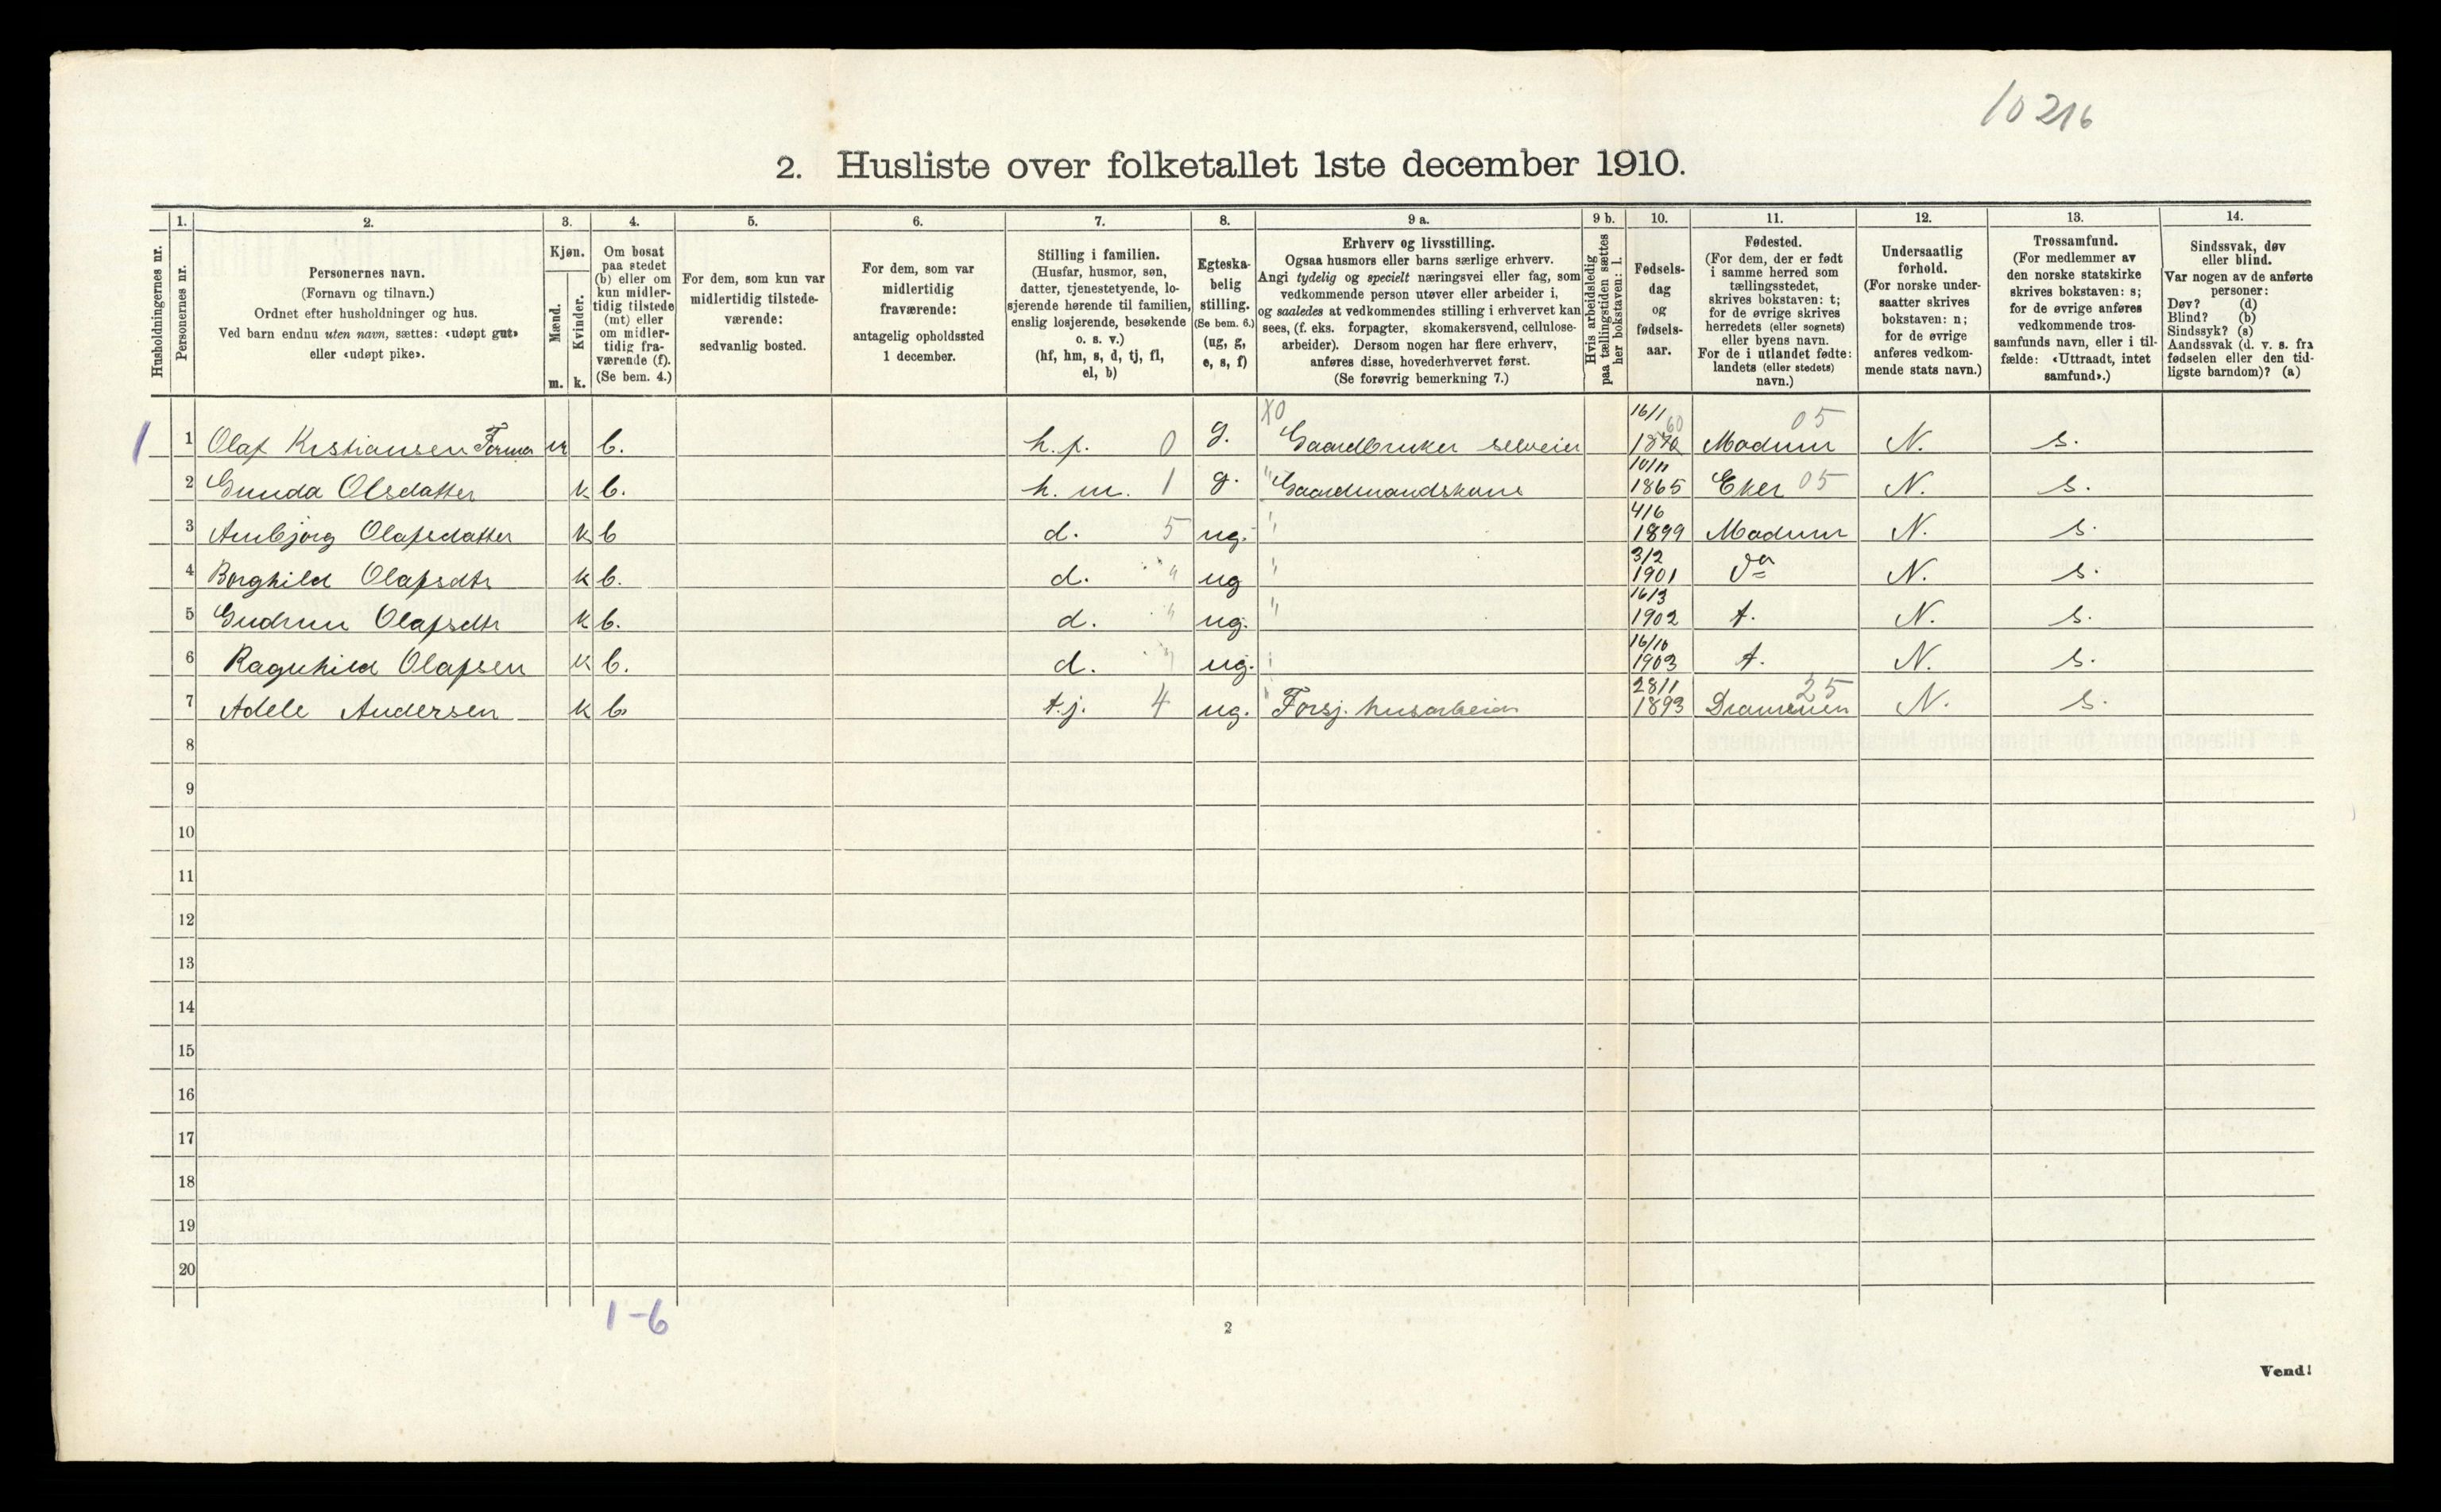 10216
2. Husliste over folketallet 1ste december 1910.
1. 2. 3. 4. 5. 6. 7. 8. 9 a. 9 b. 10. 11. 12. 13. 14.
Husholdningernes nr.
Personernes nr.
Personernes navn.
(Fornavn og tilnavn.)
Ordnet efter husholdninger og hus.
Ved barn endnu uten navn, sættes: «udøpt gut»
eller «udøpt pike».
Kjøn.
Mænd.
Kvinder.
m. k.
Om bosat
paa stedet
(b) eller om
kun midler-
tidig tilstede
(mt) eller
om midler-
tidig fra-
værende (f).
(Se bem. 4.)
For dem, som kun var
midlertidig tilstede-
værende:
sedvanlig bosted.
For dem, som var
midlertidig
fraværende:
antagelig opholdssted
1 december.
Stilling i familien.
(Husfar, husmor, søn,
datter, tjenestetyende, lo-
sjerende hørende til familien,
enslig losjerende, besøkende
o. s. v.)
(hf, hm, s, d, tj, fl,
el, b)
Egteska-
belig
stilling.
(Se bem. 6.)
(ug, g,
e, s, f)
Erhverv og livsstilling.
Ogsaa husmors eller barns særlige erhverv.
Angi tydelig og specielt næringsvei eller fag, som
vedkommende person utøver eller arbeider i,
og saaledes at vedkommendes stilling i erhvervet kan
sees, (f. eks. forpagter, skomakersvend, cellulose-
arbeider). Dersom nogen har flere erhverv,
anføres disse, hovederhvervet først.
(Se forøvrig bemerkning 7.)
Hvis arbeidsledig
paa tællingstiden sættes
her bokstaven: l.
Fødsels-
dag
og
fødsels-
aar.
Fødested.
(For dem, der er født
i samme herred som
tællingsstedet,
skrives bokstaven: t;
for de øvrige skrives
herredets (eller sognets)
eller byens navn.
For de i utlandet fødte:
landets (eller stedets)
navn.)
Undersaatlig
forhold.
(For norske under-
saatter skrives
bokstaven: n;
for de øvrige
anføres vedkom-
mende stats navn.)
Trossamfund.
(For medlemmer av
den norske statskirke
skrives bokstaven: s;
for de øvrige anføres
vedkommende tros-
samfunds navn, eller i til-
fælde: «Uttraadt, intet
samfund».)
Sindssvak, døv
eller blind.
Var nogen av de anførte
personer:
Døv? (d)
Blind? (b)
Sindssyk? (s)
Aandssvak (d. v. s. fra
fødselen eller den tid-
ligste barndom)? (a)
X0 16/1 60 05
1 1 Olaf Kristiansen m b. h. f. 0 g. Gaardbruker selveier Modum N. s.
10/11
2 Gunda Olsdatter k b. h. m. 1 g. " Gaardmandskone 1865 Eker 05 N. s.
4/6
3 Ambjörg Olafsdatter k b d. 5 ug. " 1899 Modum N. s.
3/2
4 Borghild Olafsdtr k b. d. " ug " 1901 do N. s.
16/3
5 Gudrun Olafsdtr k b. d. " ug. " 1902 t. N. s.
16/10
6 Ragnhild Olafsen k b. d. " ug. " 1903 t. N. s.
28/1 25
7 Adele Andersen k b t.j. 4 ug. " Forsj. husarbeide 1893 Drammen N. s.
8
9
10
11
12
13
14
15
16
17
18
19
20
1-6
2
Vend!